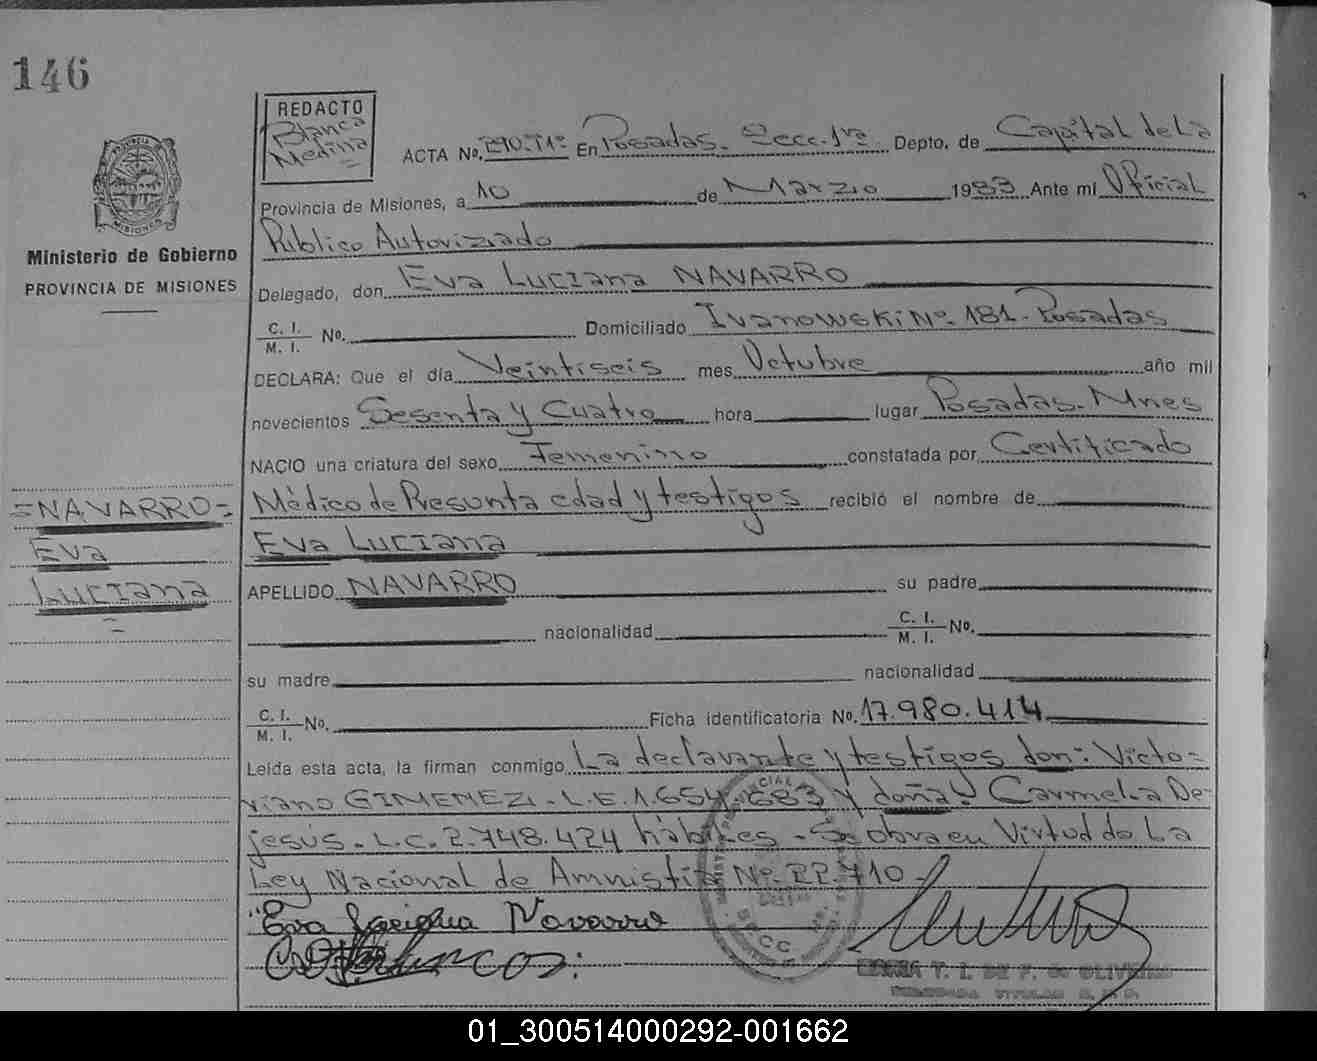 146
REDACTO
Blanca
Medina
ACTA No. 290.T1º En Posadas. Secc. 1ra Depto. de Capital de La
Provincia de Misiones, a 10 de Marzo 1983 Ante mi Oficial
Público Autorizado
PROVINCIA
MISIONES
Ministerio de Gobierno
PROVINCIA DE MISIONES
Delegado, don Eva Luciana NAVARRO
C. I.
M. I. No. Domiciliado Ivanowski Nº. 181 - Posadas
DECLARA: Que el día Veintiseis mes Octubre año mil
novecientos Sesenta y Cuatro hora lugar Posadas - Mnes
NACIO una criatura del sexo Femenino constatada por Certificado
Médico de Presunta edad y testigos recibió el nombre de
Eva Luciana
=NAVARRO=
Eva
Luciana
APELLIDO NAVARRO su padre
nacionalidad C. I.
M. I. No.
su madre nacionalidad
C. I.
M. I. No. Ficha identificatoria No. 17.980.414
Leída esta acta, la firman conmigo La declarante y testigos don: Victo=
riano GIMENEZ - L.E. 1.654.683 y doña! Carmela De
jesús. L.C. 2.748.424 hábiles - Se obra en Virtud de La
Ley Nacional de Amnistía Nº. 22.710 -
Eva Navarro
01_300514000292-001662